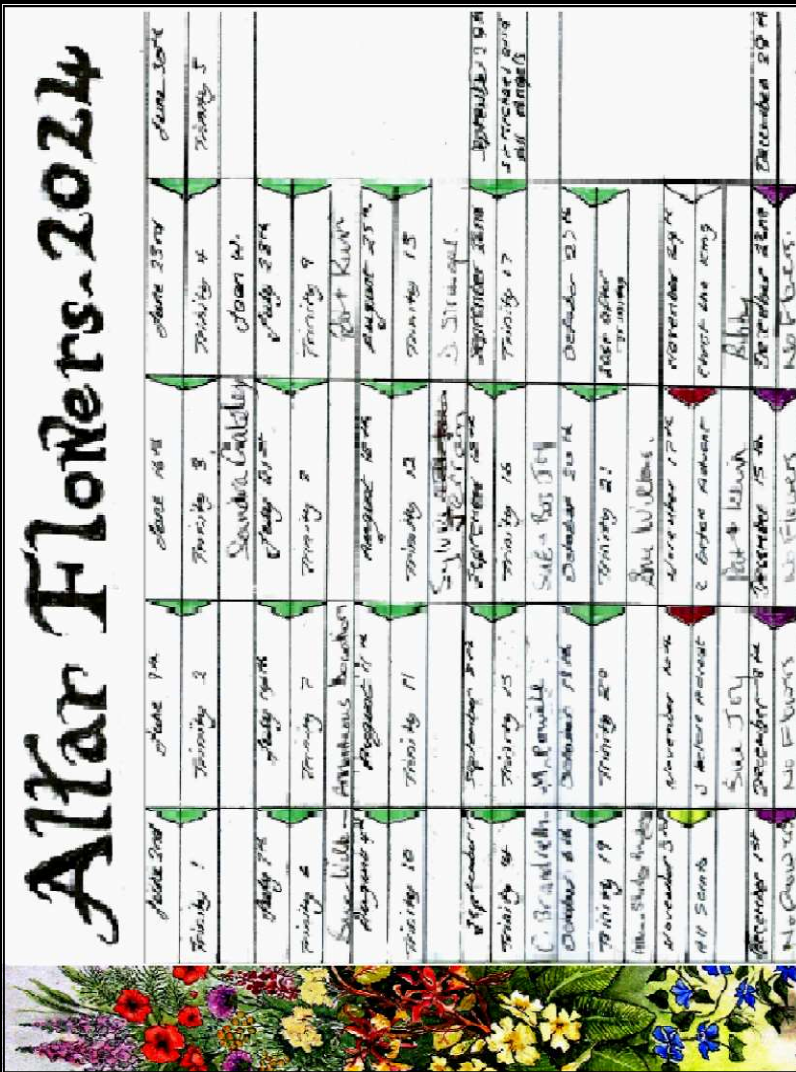 Altar Flowers-2024
June 2nd June 9th June 16th June 23rd June 30th
Trinity 1 Trinity 2 Trinity 3 Trinity 4 Trinity 5
Sandra Joan W.
July 7th July 14th July 21st July 28th
Trinity 6 Trinity 7 Trinity 8 Trinity 9
Sue Anonymous Donation Pat + Kevin
August 4th August 11th August 18th August 25th
Trinity 10 Trinity 11 Trinity 12 Trinity 13
Sylvia Jerram
September 1 September 8th September 15th September 22nd September 29th
Trinity 14 Trinity 15 Trinity 16 Trinity 17 St Michael and
All Angels
C. Brandreth M. Powell Sue + Joy
October 6th October 13th October 20th October 27th
Trinity 19 Trinity 20 Trinity 21 Last after
Trinity
Sue Williams.
November 3rd November 10th November 17th November 24th
All Saints 3 before Advent 2 before Advent Christ the King
Sue Joy Pat + Kevin
December 1st December 8th December 15th December 22nd December 29th
No Flowers No Flowers No Flowers No Flowers.